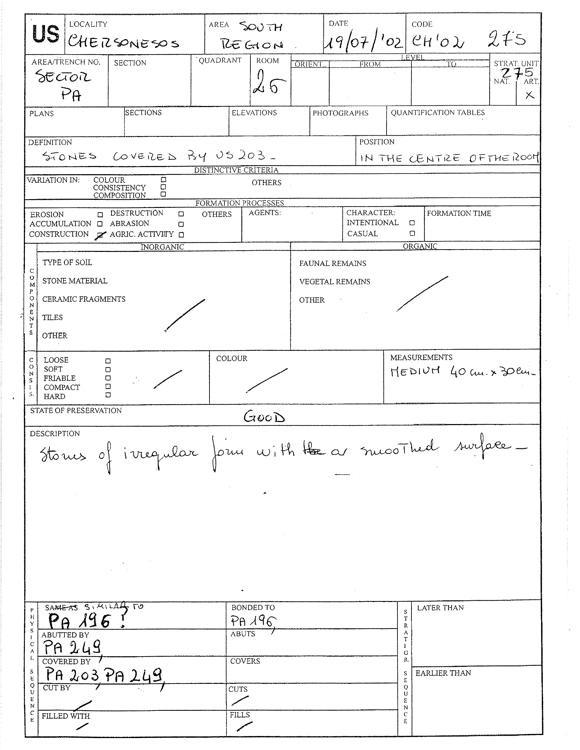 US
LOCALITY
CHERSONESOS
AREA SOUTH
REGION
DATE
19/07/'02
CODE
CH'02 275
AREA/TRENCH NO.
SECTOR
PA
SECTION
QUADRANT
ROOM
26
LEVEL
ORIENT. FROM TO
STRAT. UNIT
275
NAT. ART.
x
PLANS
SECTIONS
ELEVATIONS
PHOTOGRAPHS
QUANTIFICATION TABLES
DEFINITION
STONES COVERED BY US 203 -
POSITION
IN THE CENTRE OF THE ROOM
DISTINCTIVE CRITERIA
VARIATION IN: COLOUR
CONSISTENCY
COMPOSITION
OTHERS
FORMATION PROCESSES
EROSION DESTRUCTION OTHERS
ACCUMULATION ABRASION
CONSTRUCTION AGRIC. ACTIVITY
AGENTS:
CHARACTER:
INTENTIONAL
CASUAL
FORMATION TIME
COMPONENTS
INORGANIC
TYPE OF SOIL
STONE MATERIAL
CERAMIC FRAGMENTS
TILES
OTHER
ORGANIC
FAUNAL REMAINS
VEGETAL REMAINS
OTHER
CONSIS.
LOOSE
SOFT
FRIABLE
COMPACT
HARD
COLOUR
MEASUREMENTS
MEDIUM 40 cm. x 30 cm.
STATE OF PRESERVATION
GOOD
DESCRIPTION
Stones of irregular form with the a smoothed surface -
PHYSICAL SEQUENCE
SAME AS SIMILAR TO
PA 196?
BONDED TO
PA 196,
ABUTTED BY
PA 249,
ABUTS
COVERED BY
PA 203, PA 249,
COVERS
CUT BY
CUTS
FILLED WITH
FILLS
STRATIGR. SEQUENCE
LATER THAN
EARLIER THAN